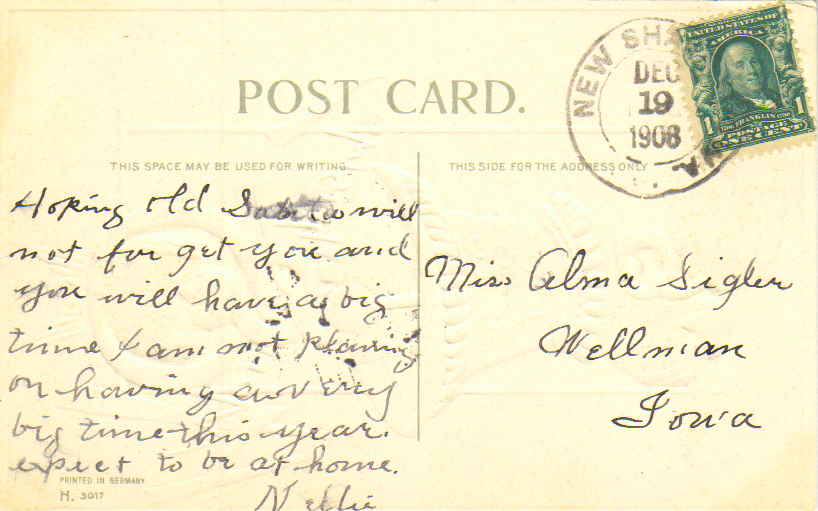 POST CARD.
NEW SHA
DEC
19
1908
UNITED STATES OF
AMERICA
1 FRANKLIN 1
POSTAGE
ONE CENT
THIS SPACE MAY BE USED FOR WRITING
THIS SIDE FOR THE ADDRESS ONLY
Hoping old will
not for get you and
you will have a big
time I am not planing
on having a very
big time this year.
expect to be at home.
Nellie
Miss Alma Sigler
Wellman
Iowa
PRINTED IN GERMANY
H. 3017